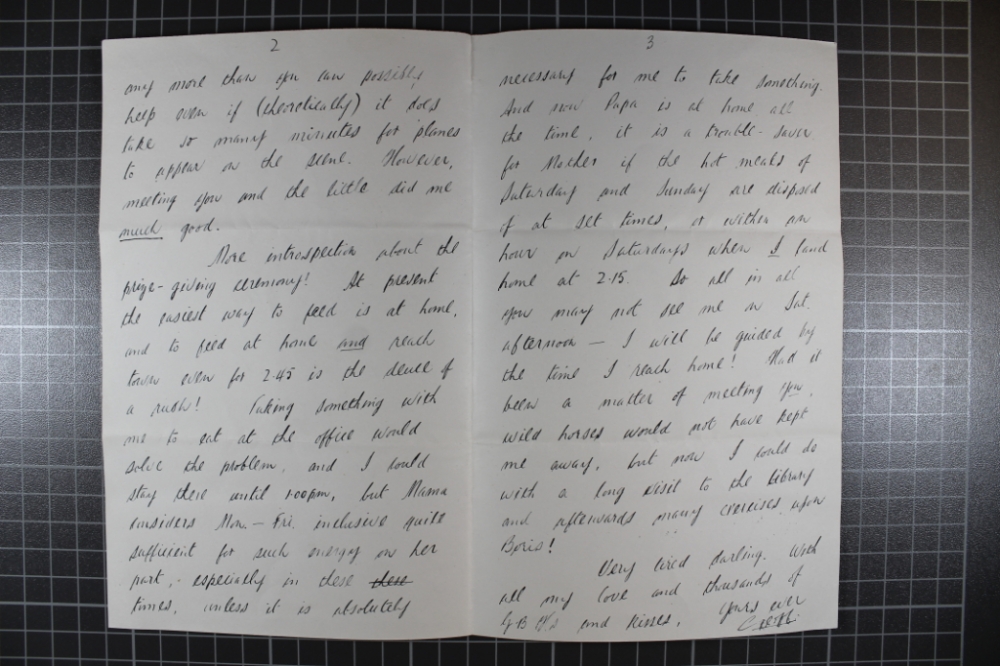 2
any more than you can possibly
help even if (theoretically) it does
take so many minutes for planes
to appear on the scene. However,
meeting you and the little did me
much good.
More introspection about the
prize-giving ceremony! At present
the easiest way to feed is at home,
and to feed at home and reach
town even for 2.45 is the deuce of
a rush! Taking something with
me to eat at the office would
solve the problem, and I could
stay there until 1.00pm, but Mama
considers Mon. - Fri. inclusive quite
sufficient for such energy on her
part, - especially in these these
times, unless it is absolutely
3
necessary for me to take something.
And now Papa is at home all
the time, it is a trouble-saver
for Mother if the hot meals of
Saturday and Sunday are disposed
of at set times, or within an
hour on Saturdays when I land
home at 2.15. So all in all
you may not see me on Sat.
afternoon — I will be guided by
the time I reach home! Had it
been a matter of meeting you,
wild horses would not have kept
me away, but now I could do
with a long visit to the library
and afterwards many exercises upon
Boris!
Very tired darling. With
all my love and thousands of
G.B.H's and kisses, yours ever